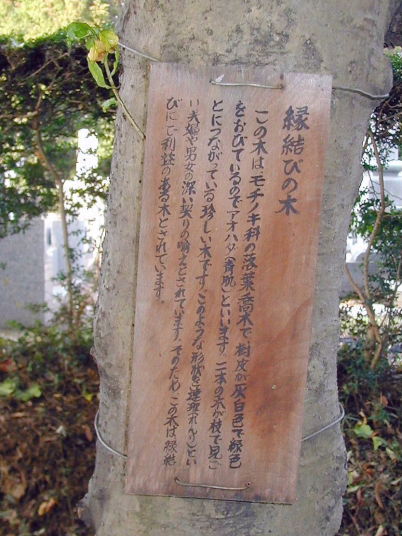 縁結びの木
この木はモチノキ科の落葉喬木で、樹皮が灰白色で緑色
をおびているので、アオハダ(青肌)といいます。二本の木が枝で見ご
とにつながっている珍しい木です。このような形状を連理(れんり)とい
い夫婦や男女の深い契りの喩えとされています。そのため、この木は縁結
びにご利益のある木とされています。